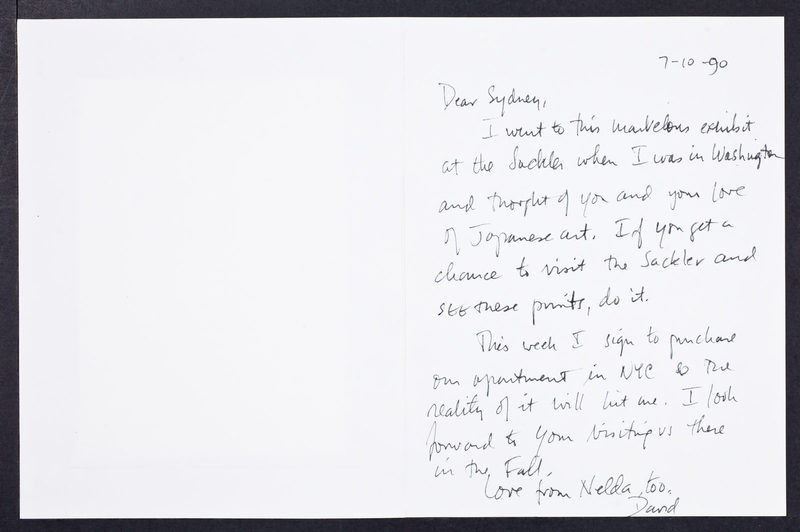 7-10-90
Dear Sydney,
I went to this marvelous exhibit
at the Sackler when I was in Washington
and thought of you and your love
of Japanese art. If you get a
chance to visit the Sackler and
SEE these prints, do it.
This week I sign to purchase
our apartment in NYC so the
reality of it will hit me. I look
forward to your visiting us there
in the Fall.
Love from Nelda, too.
David